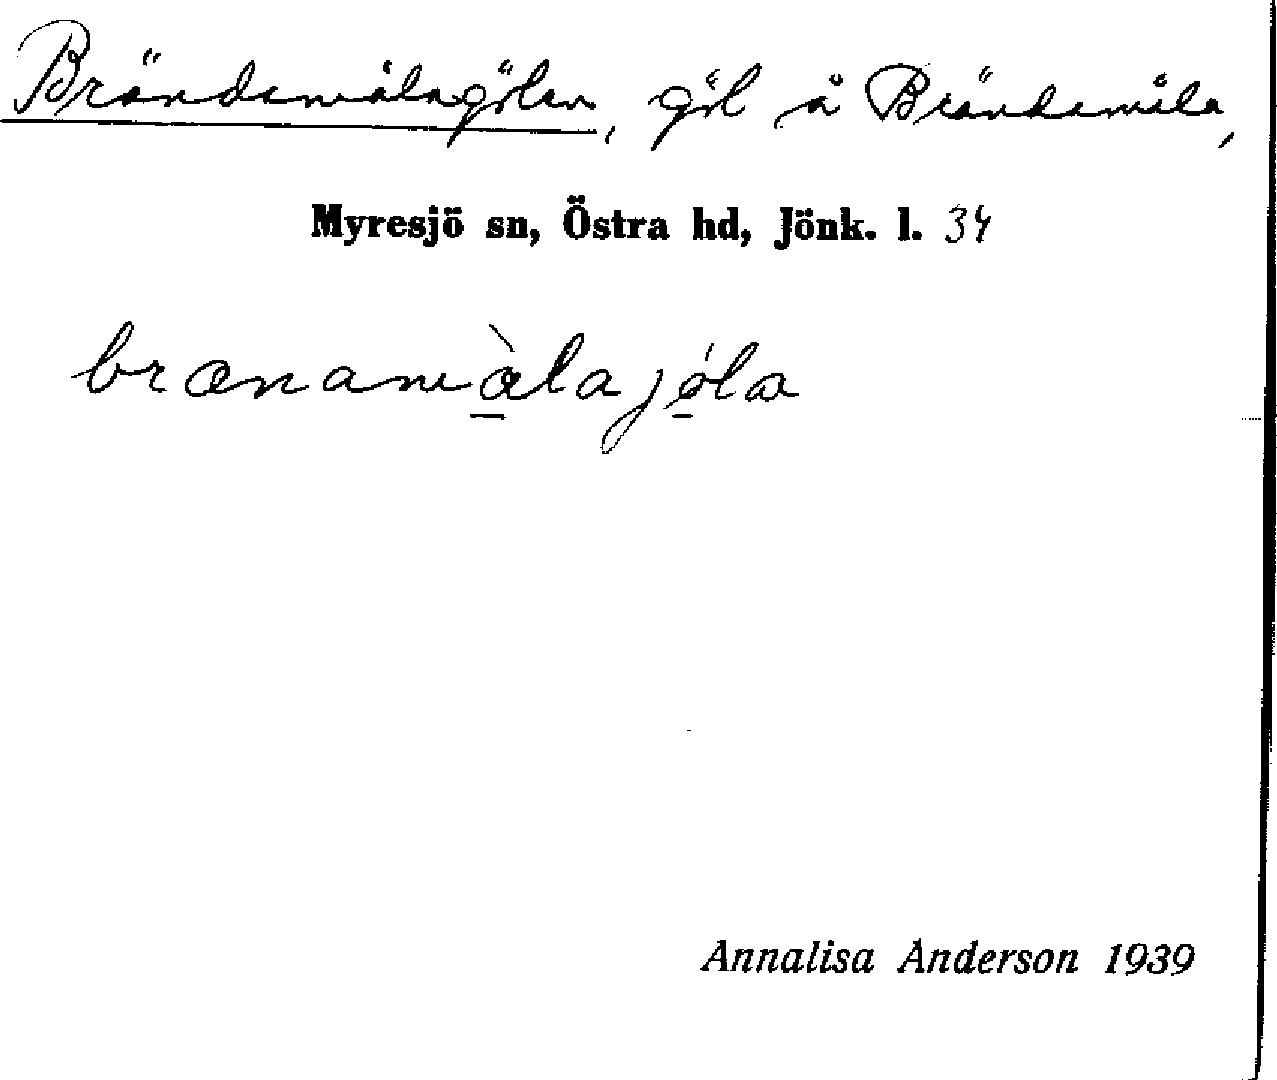 Brändemålagölen, göl å Brändemåla,
Myresjö sn, Östra hd, Jönk. l. 34
brænamàlajö́la
Annalisa Anderson 1939